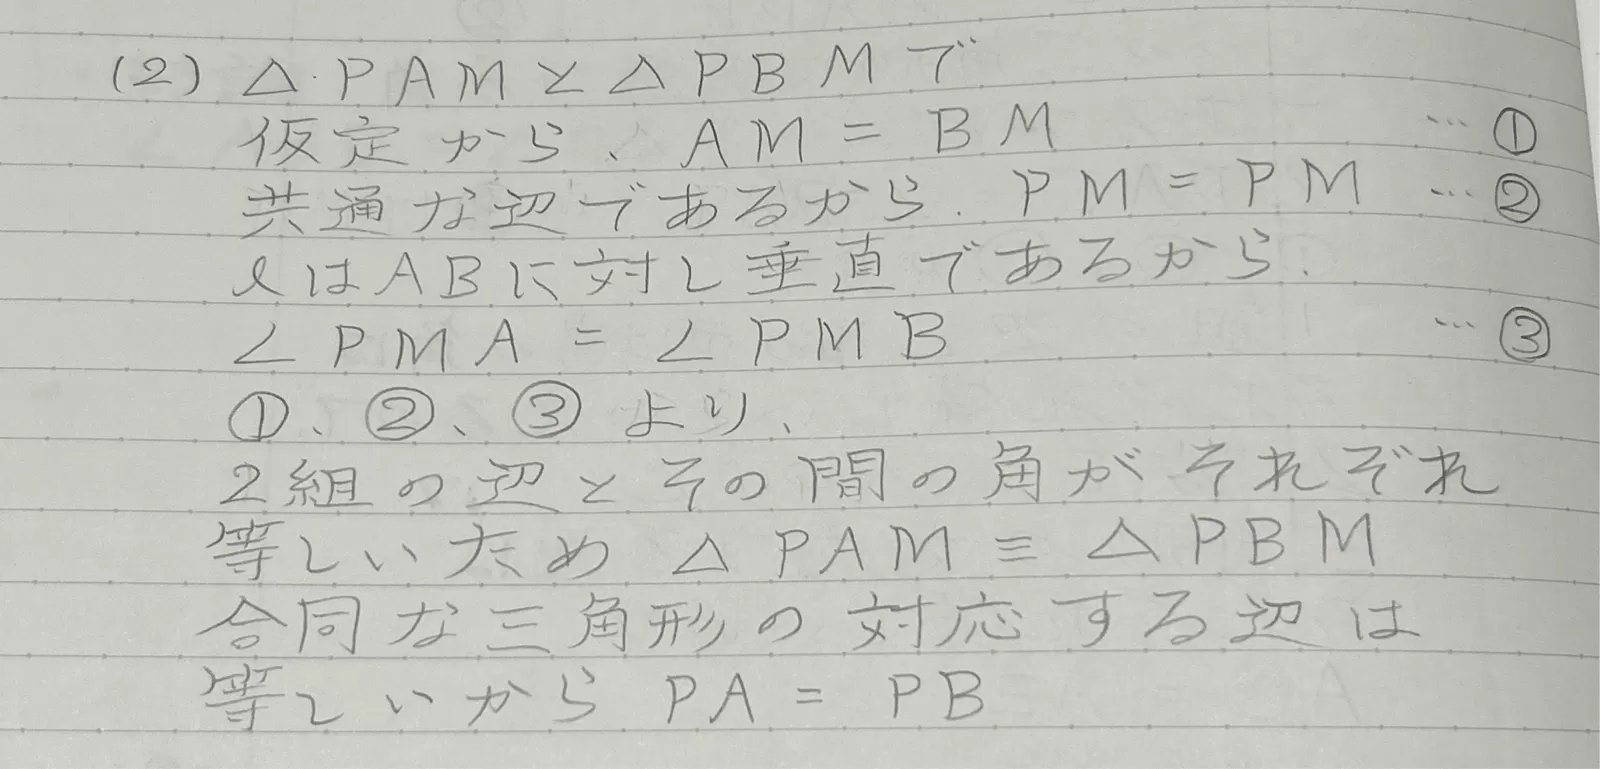 (2) △PAMと△PBMで
仮定から、AM=BM …①
共通な辺であるから、PM=PM …②
ℓはABに対し垂直であるから、
∠PMA=∠PMB …③
①、②、③より、
2組の辺とその間の角がそれぞれ
等しいため△PAM≡△PBM
合同な三角形の対応する辺は
等しいからPA=PB